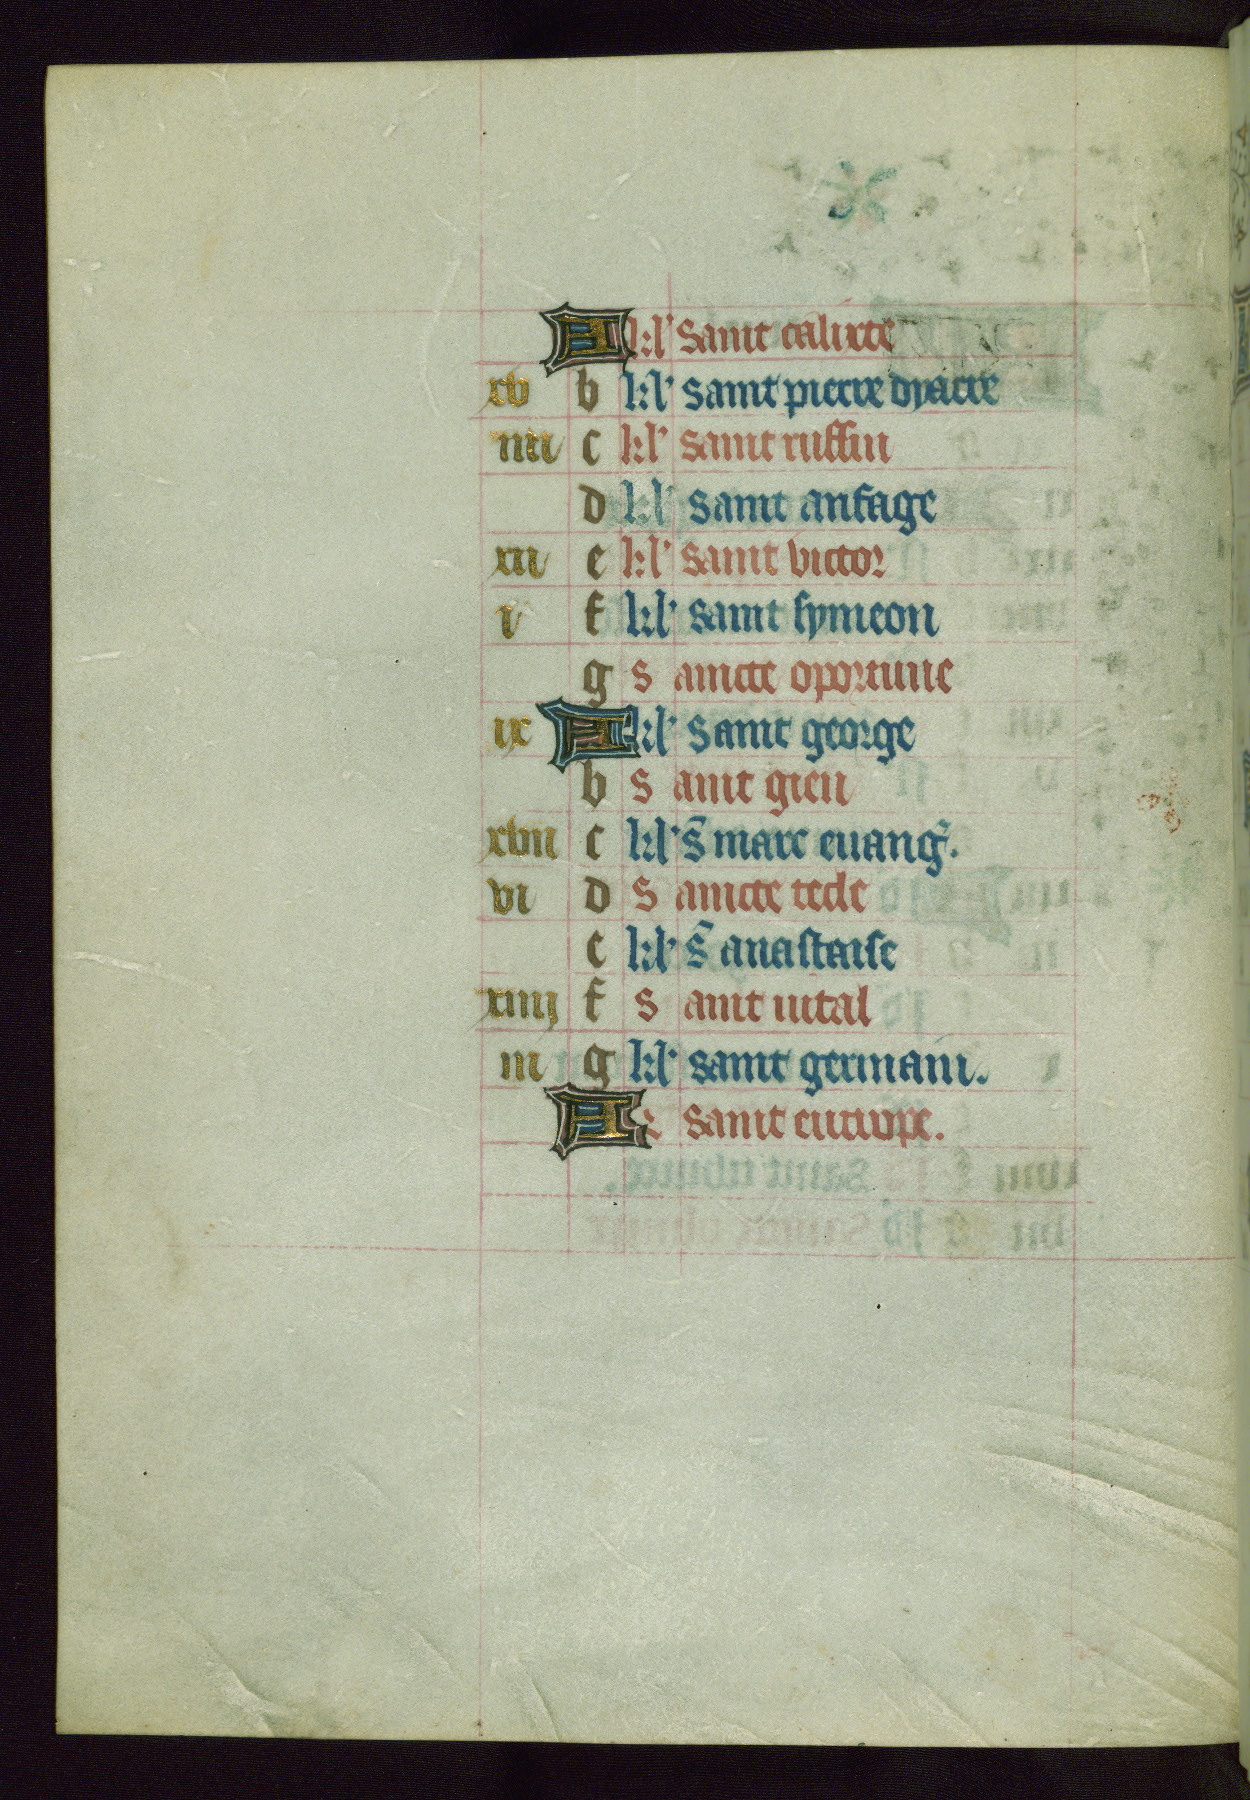 A kl' Saint calixte
xv b kl' saint pierre dyacre
iiii c kl' saint ruffin
d kl' saint anfage
xii e kl' saint victor
i f kl' saint symeon
g s aincte oportune
ix A kl' saint george
b s aint gien
xviii c kl' s̄ marc euang̃.
vi d s aincte tecle
e kl' s̄ anastaise
xiiij f s aint uital
iii g kl' saint germain.
A saint eutrope.